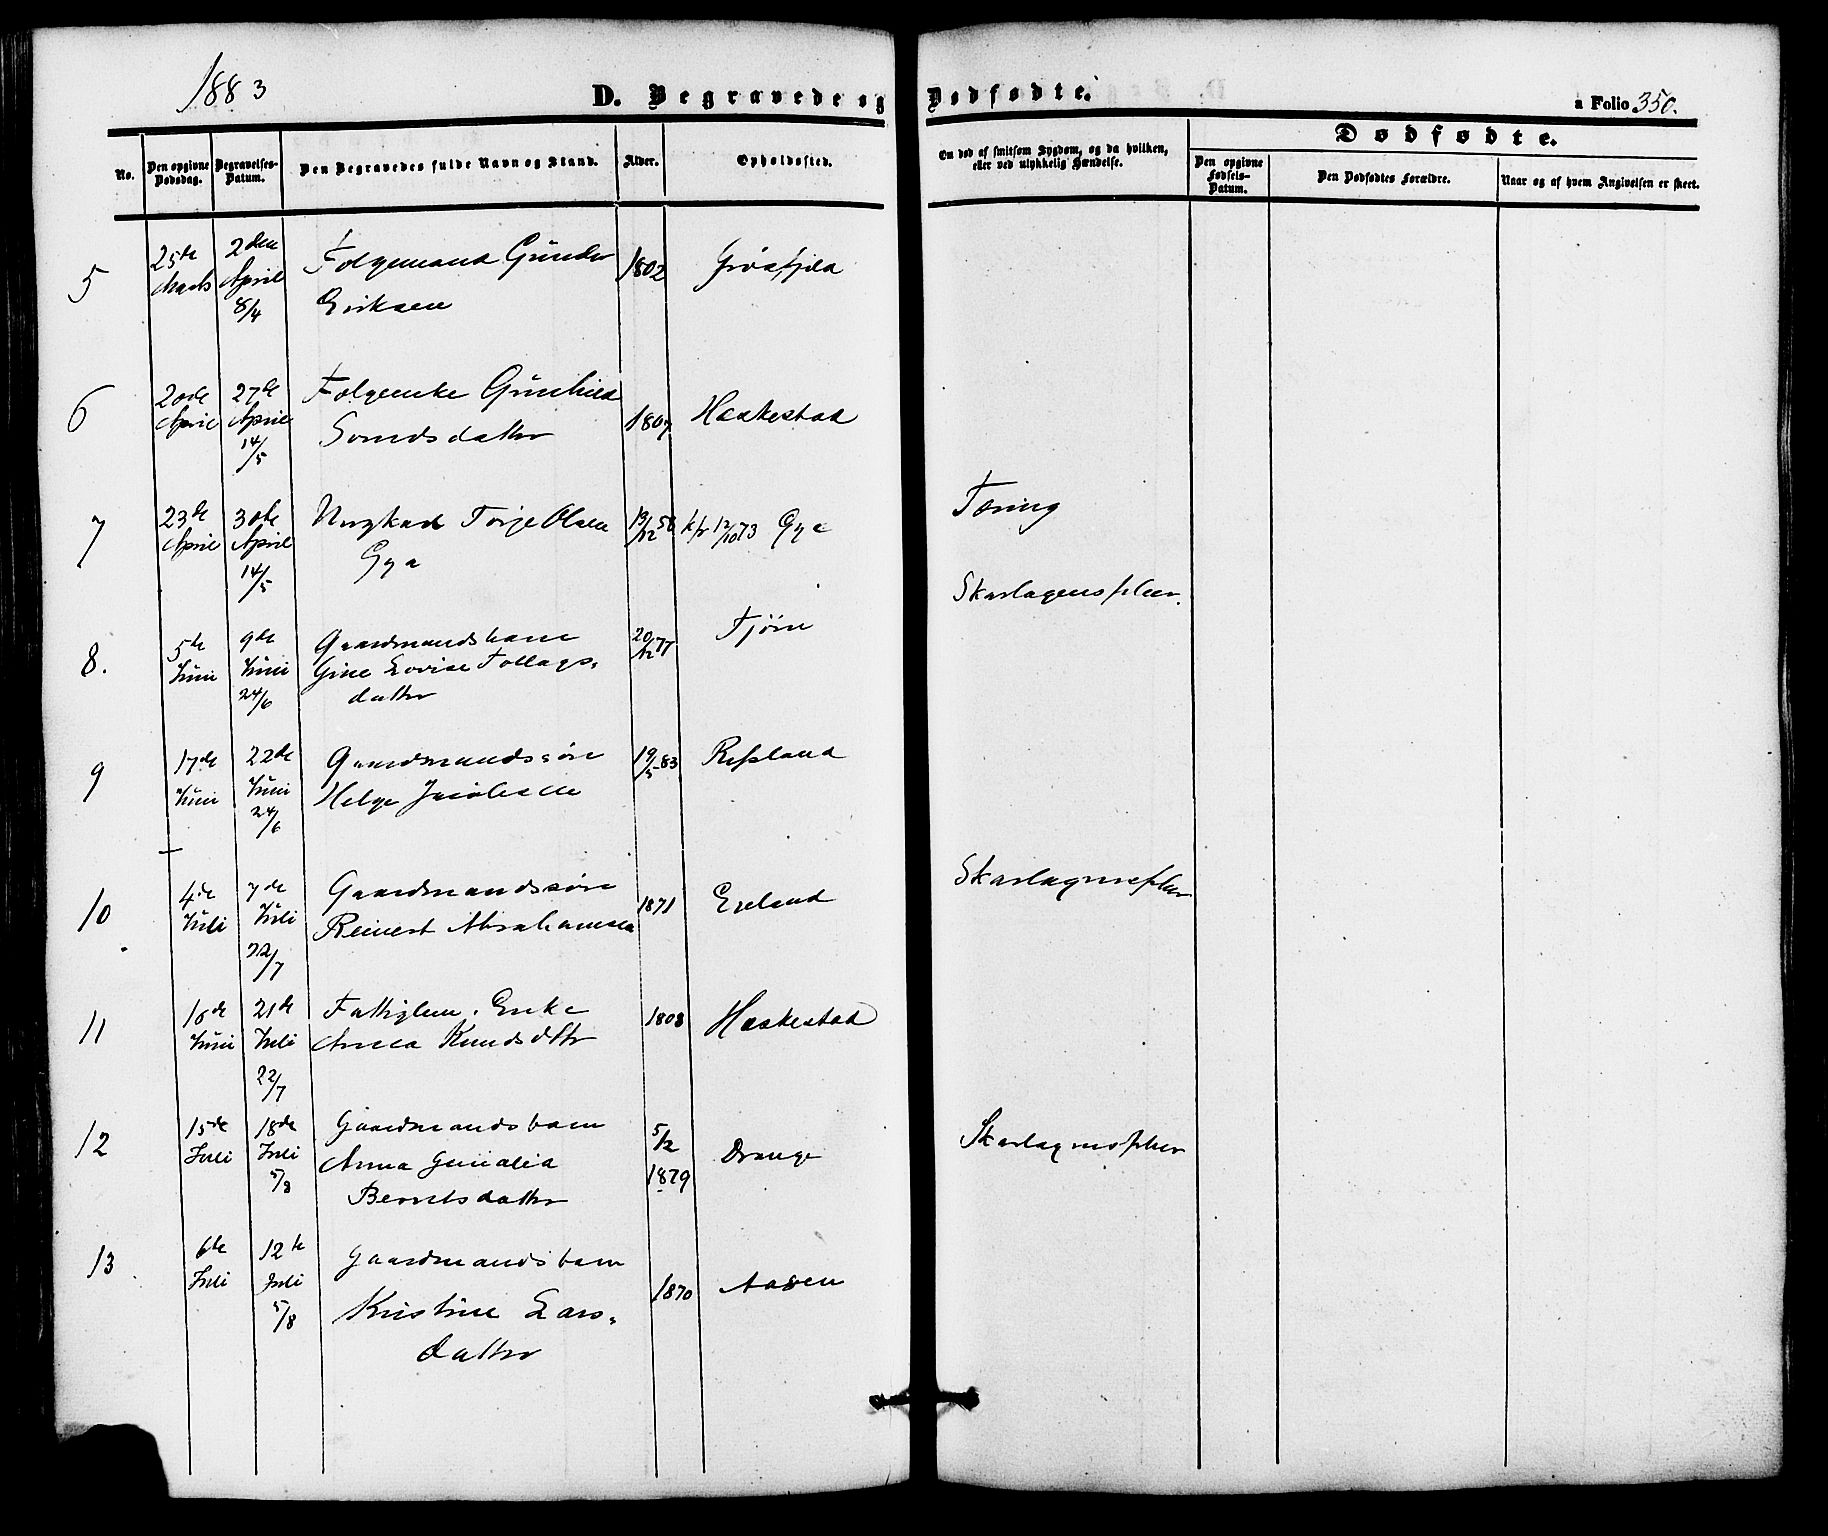 1883
D. Begravede og Dødfødte.
a Folio 350.
No.
Den opgivne Dødsdag.
Begravelses-Datum.
Den Begravedes fulde Navn og Stand.
Alder.
Opholdssted.
Om død af smitsom Sygdom, og da hvilken,
eller ved ulykkelig Hændelse.
Dødfødte.
Den opgivne Fødsels-Datum.
Den Dødfødtes Forældre.
Naar og af hvem Angivelsen er skeet.
5 25de Marts 2den April 8/4 Folgemand Gunder Eriksen 1802
6 20de April 27de April 14/5 Folgeenke Gunhild 1807 Haakestad
7 23de April 30de April 14/5 Ungkarl Torje Olsen Gya 13/12 56 kfr 12/10 73 Gya Tæring
8. 5te Juni 9de Juni 24/6 Gaardmandsbarn Gine Lovise Tollags-datter 20/12 77 Tjørn Skarlagensfeber.
9 17de Juni 22de Juni 24/6 Gaardmandssøn Helge Jacobsen 19/5 83 Refsland
10 4de Juli 7de Juli 22/7 Gaardmandssøn Reinert Abrahamsen 1871 Eieland Skarlagensfeber
11 16de Juni 21de Juli 22/7 Fattiglem. Enke Anna Knudsdtr 1808 Haakestad
12 15de Juli 18de Juli 5/8 Gaardmandsbarn Anna Berntsdatter 5/2 1879 Drange Skarlagensfeber
13. 6te Juli 12te Juli 5/8 Gaardmandsbarn Kristine Lars-datter 1870 Aasen